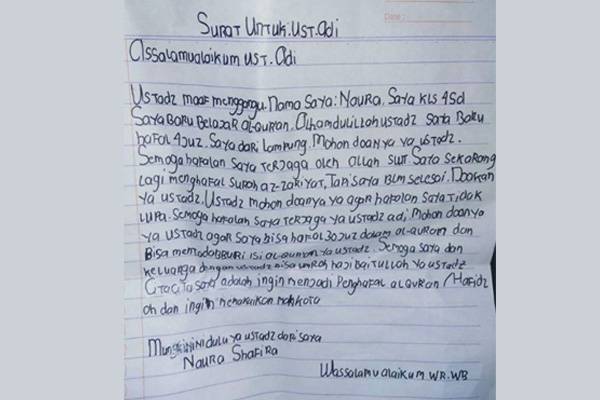 Date:
SURAT UNTUK:UST.Adi
Assalamualaikum UST.Adi
USTADZ maaf menggangu. Nama saya: NAURA, Saya kls 4sd
Saya baru belajar al-quran. Alhamdulillah ustadz saya baru
hafal 4juz. Saya dari Lampung. Mohon doanya ya ustadz.
Semoga hafalan saya terjaga oleh Allah swt saya sekarang
lagi menghafal surah az-zariyat, Tapi saya blm selesai. Doakan
ya ustadz. Ustadz mohon doanya ya agar hafalan saya tidak
lupa. Semoga hafalan saya terjaga ya ustadz adi. Mohon doanya
ya ustadz agar saya bisa hafal 30juz dalam al-quran dan
Bisa mentadabburi isi al-quran ya ustadz. Semoga saya dan
keluarga dengan ustadz bisa umroh haji baitullah ya ustadz
Cita cita saya adalah ingin menjadi Penghafal alquran /Hafidz
oh dan ingin memakaikan mahkota
Mungkin ini dulu ya ustadz dari saya
NAURA Shafira
Wassalamualaikum.WR.WB